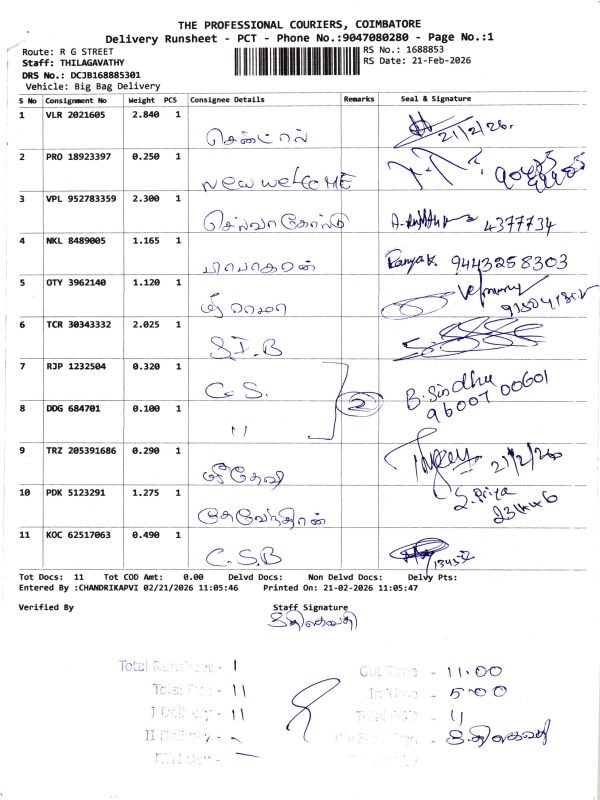 THE PROFESSIONAL COURIERS, COIMBATORE
Delivery Runsheet - PCT - Phone No.:9047080280 - Page No.:1
Route: R G STREET
RS No.: 1688853
Staff: THILAGAVATHY
RS Date: 21-Feb-2026
DRS No.: DCJB168885301
Vehicle: Big Bag Delivery
S No Consignment No Weight PCS Consignee Details Remarks Seal & Signature
1 VLR 2021605 2.840 1 சென்ட்ரல் 21/2/26.
2 PRO 18923397 0.250 1 New welcome
3 VPL 952783359 2.300 1 செல்வா கோல்டு 4377734
4 NKL 8489005 1.165 1 பிரபாகரன் Ramya k. 9443258303
5 OTY 3962140 1.120 1 ஸ்ரீ ராமா
6 TCR 30343332 2.025 1 S.I.B
7 RJP 1232504 0.320 1 C.S. B. Sindhu
8 DDG 684701 0.100 1 11 2 96007 00601
9 TRZ 205391686 0.290 1 ஸ்ரீதேவி 21/2/26
10 PDK 5123291 1.275 1 தேவேந்திரன் S. Priya
11 KOC 62517063 0.490 1 C.S.B
Tot Docs: 11 Tot COD Amt: 0.00 Delvd Docs: Non Delvd Docs: Delvy Pts:
Entered By :CHANDRIKAPVI 02/21/2026 11:05:46 Printed On: 21-02-2026 11:05:47
Verified By Staff Signature
திலகவதி
Total Runsheet - 1 Out Time - 11.00
Total Doc - 11 In Time - 5.00
I Delivery - 11 Total
II Delivery - திலகவதி